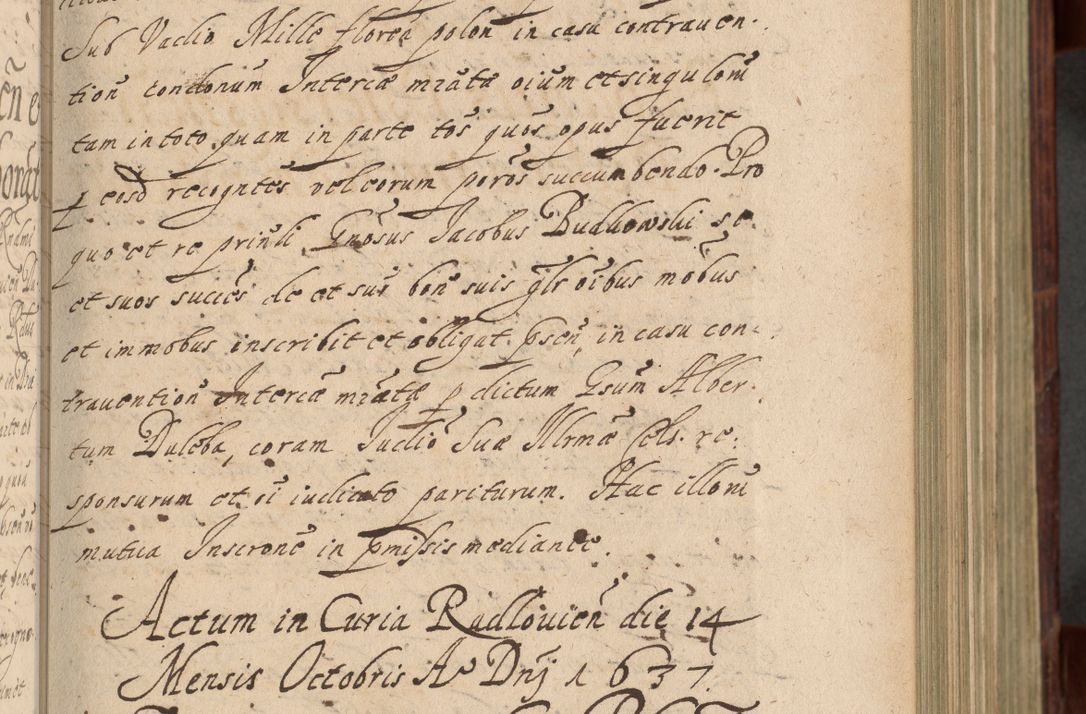 Sub Vadio Mille floreā polon̄ in casu contraven-
tion̄ condonum Intercæ mr̄atæ oīum et singulorū
tam in toto quam in parte tōs quōs opus fuerit
p eosd recogntēs vel eorum porōs succumbendo. Pro
quo et re prinl̄i Gn̄osus Jacobus Budkowski se
et suos succēs de et sup bon̄ suis gl̄r oībus mōbus
et immobus inscribit et obligat psen̄, in casu con-
travention̄ Intercæ mr̄atæ p dictum Gsum̄ Alber-
tum Duleba, coram Iudiō Suæ Illrmæ Cels. re-
sponsurum et eī iudicato pariturum. Hac illorū
mutua Inscronē in pmissis mediante.
Actum in Curia Radlovien̄ die 14
Mensis Octobris Aº Dnj 1637.